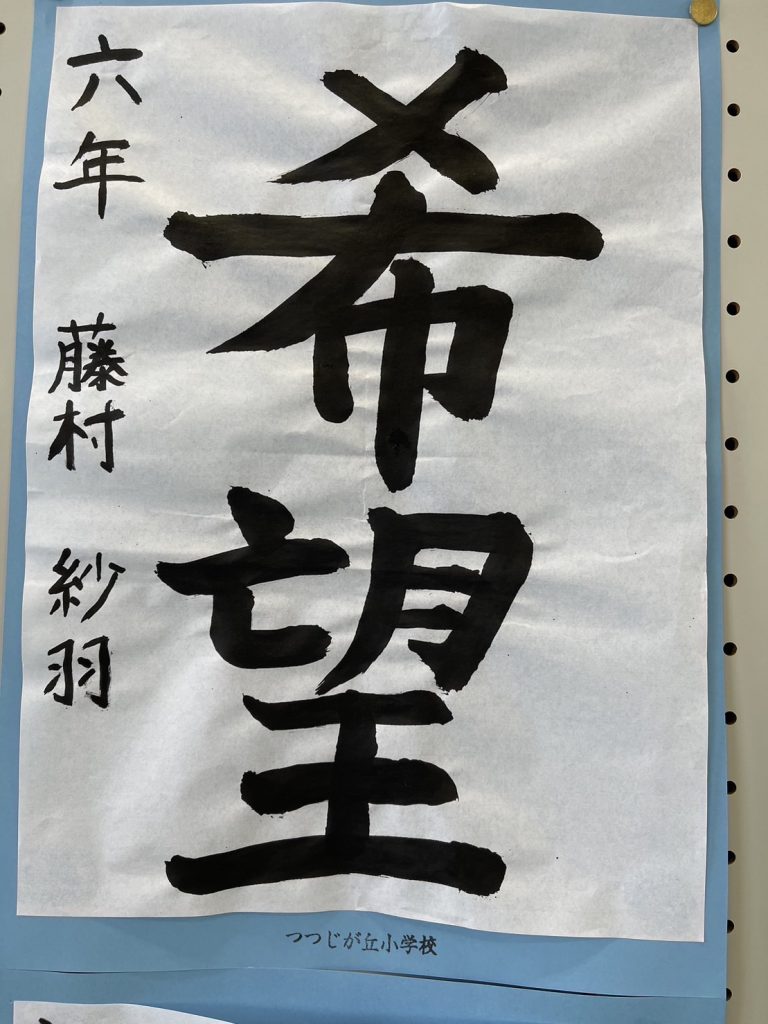 希望
六年 藤村 紗羽
つつじが丘小学校